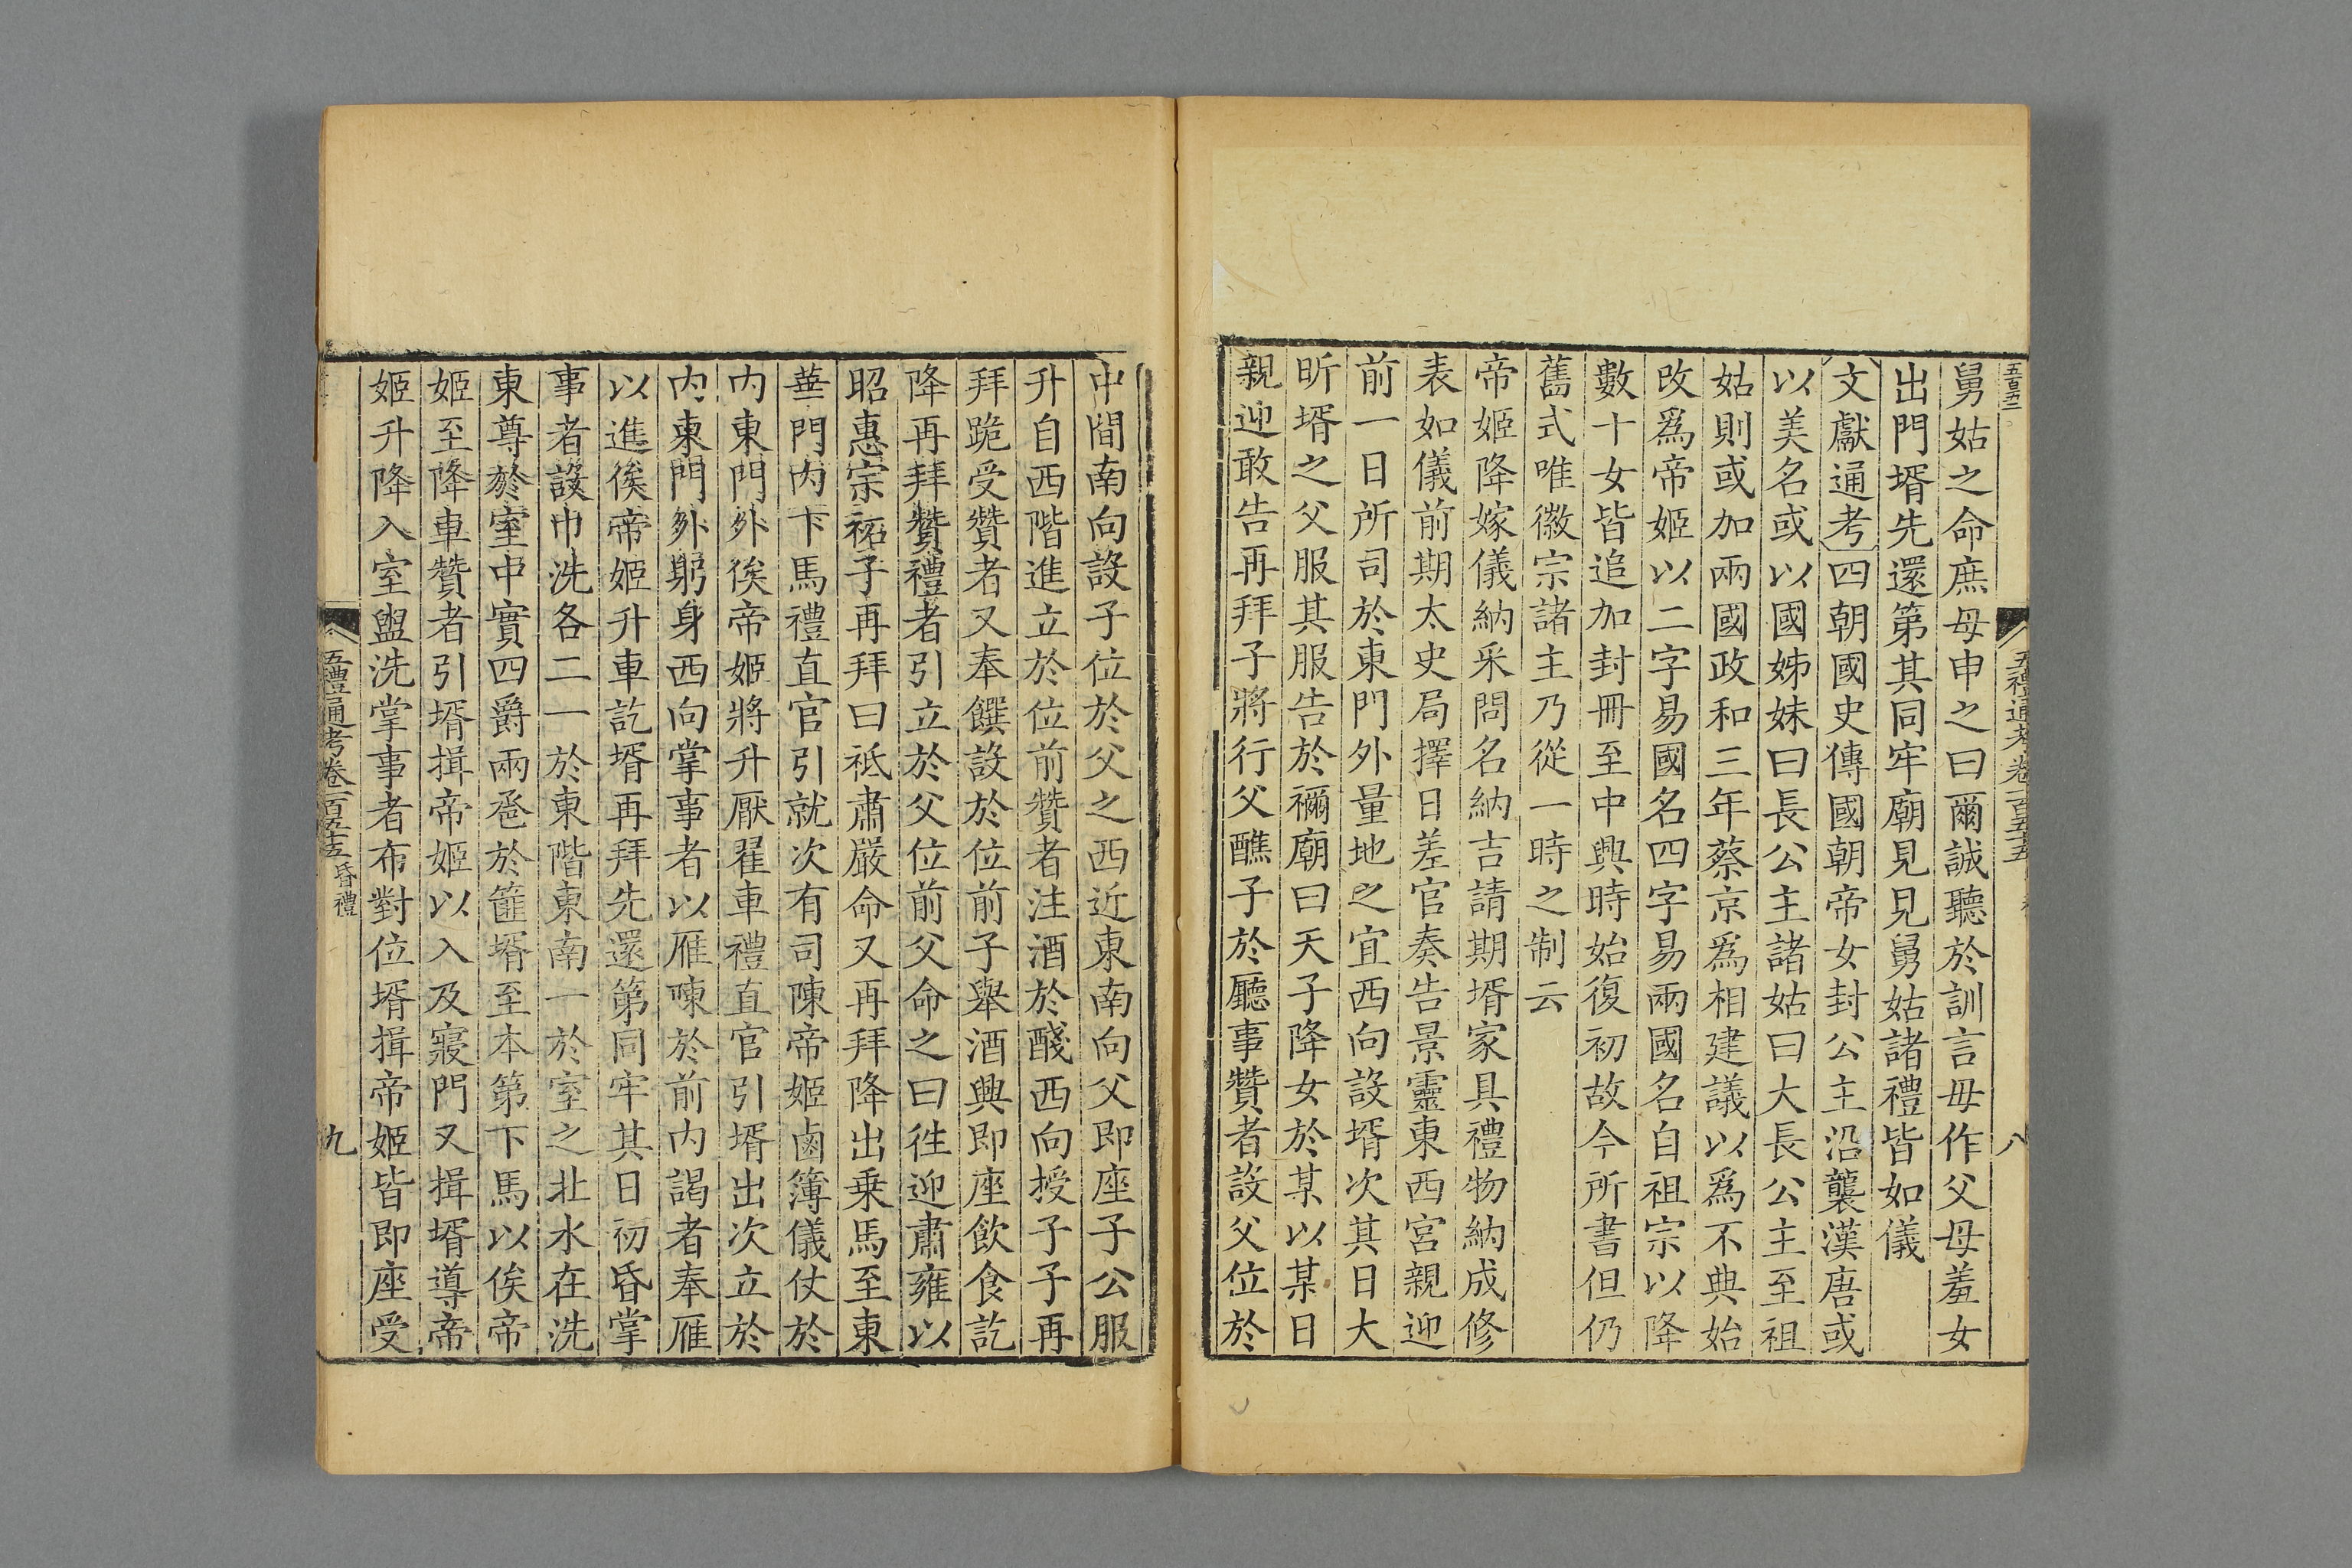 五百五二
五禮通考卷一百五十五
八
舅姑之命庶母申之曰爾誠聽於訓言毋作父母羞女
出門壻先還第其同牢廟見見舅姑諸禮皆如儀
文獻通考四朝國史傳國朝帝女封公主沿襲漢唐或
以美名或以國姊妹曰長公主諸姑曰大長公主至祖
姑則或加兩國政和三年蔡京爲相建議以爲不典始
改爲帝姬以二字易國名四字易兩國名自祖宗以降
數十女皆追加封冊至中興時始復初故今所書但仍
舊式唯徽宗諸主乃從一時之制云
帝姬降嫁儀納采問名納吉請期壻家具禮物納成修
表如儀前期太史局擇日差官奏告景靈東西宮親迎
前一日所司於東門外量地之宜西向設壻次其日大
昕壻之父服其服告於禰廟曰天子降女於某以某日
親迎敢告再拜子將行父醮子於廳事贊者設父位於
中間南向設子位於父之西近東南向父即座子公服
升自西階進立於位前贊者注酒於醆西向授子子再
拜跪受贊者又奉饌設於位前子舉酒興即座飲食訖
降再拜贊禮者引立於父位前父命之曰徃迎肅雍以
昭惠宗祏子再拜曰祗肅嚴命又再拜降出乗馬至東
華門内下馬禮直官引就次有司陳帝姬鹵簿儀仗於
内東門外俟帝姬將升厭翟車禮直官引壻出次立於
内東門外躬身西向掌事者以雁陳於前内謁者奉雁
以進俟帝姬升車訖壻再拜先還第同牢其日初昏掌
事者設巾洗各二一於東階東南一於室之北水在洗
東尊於室中實四爵兩卺於篚壻至本第下馬以俟帝
姬至降車贊者引壻揖帝姬以入及寢門又揖壻導帝
姬升降入室盥洗掌事者布對位壻揖帝姬皆即座受
五禮通考卷一百五十五 昏禮
九